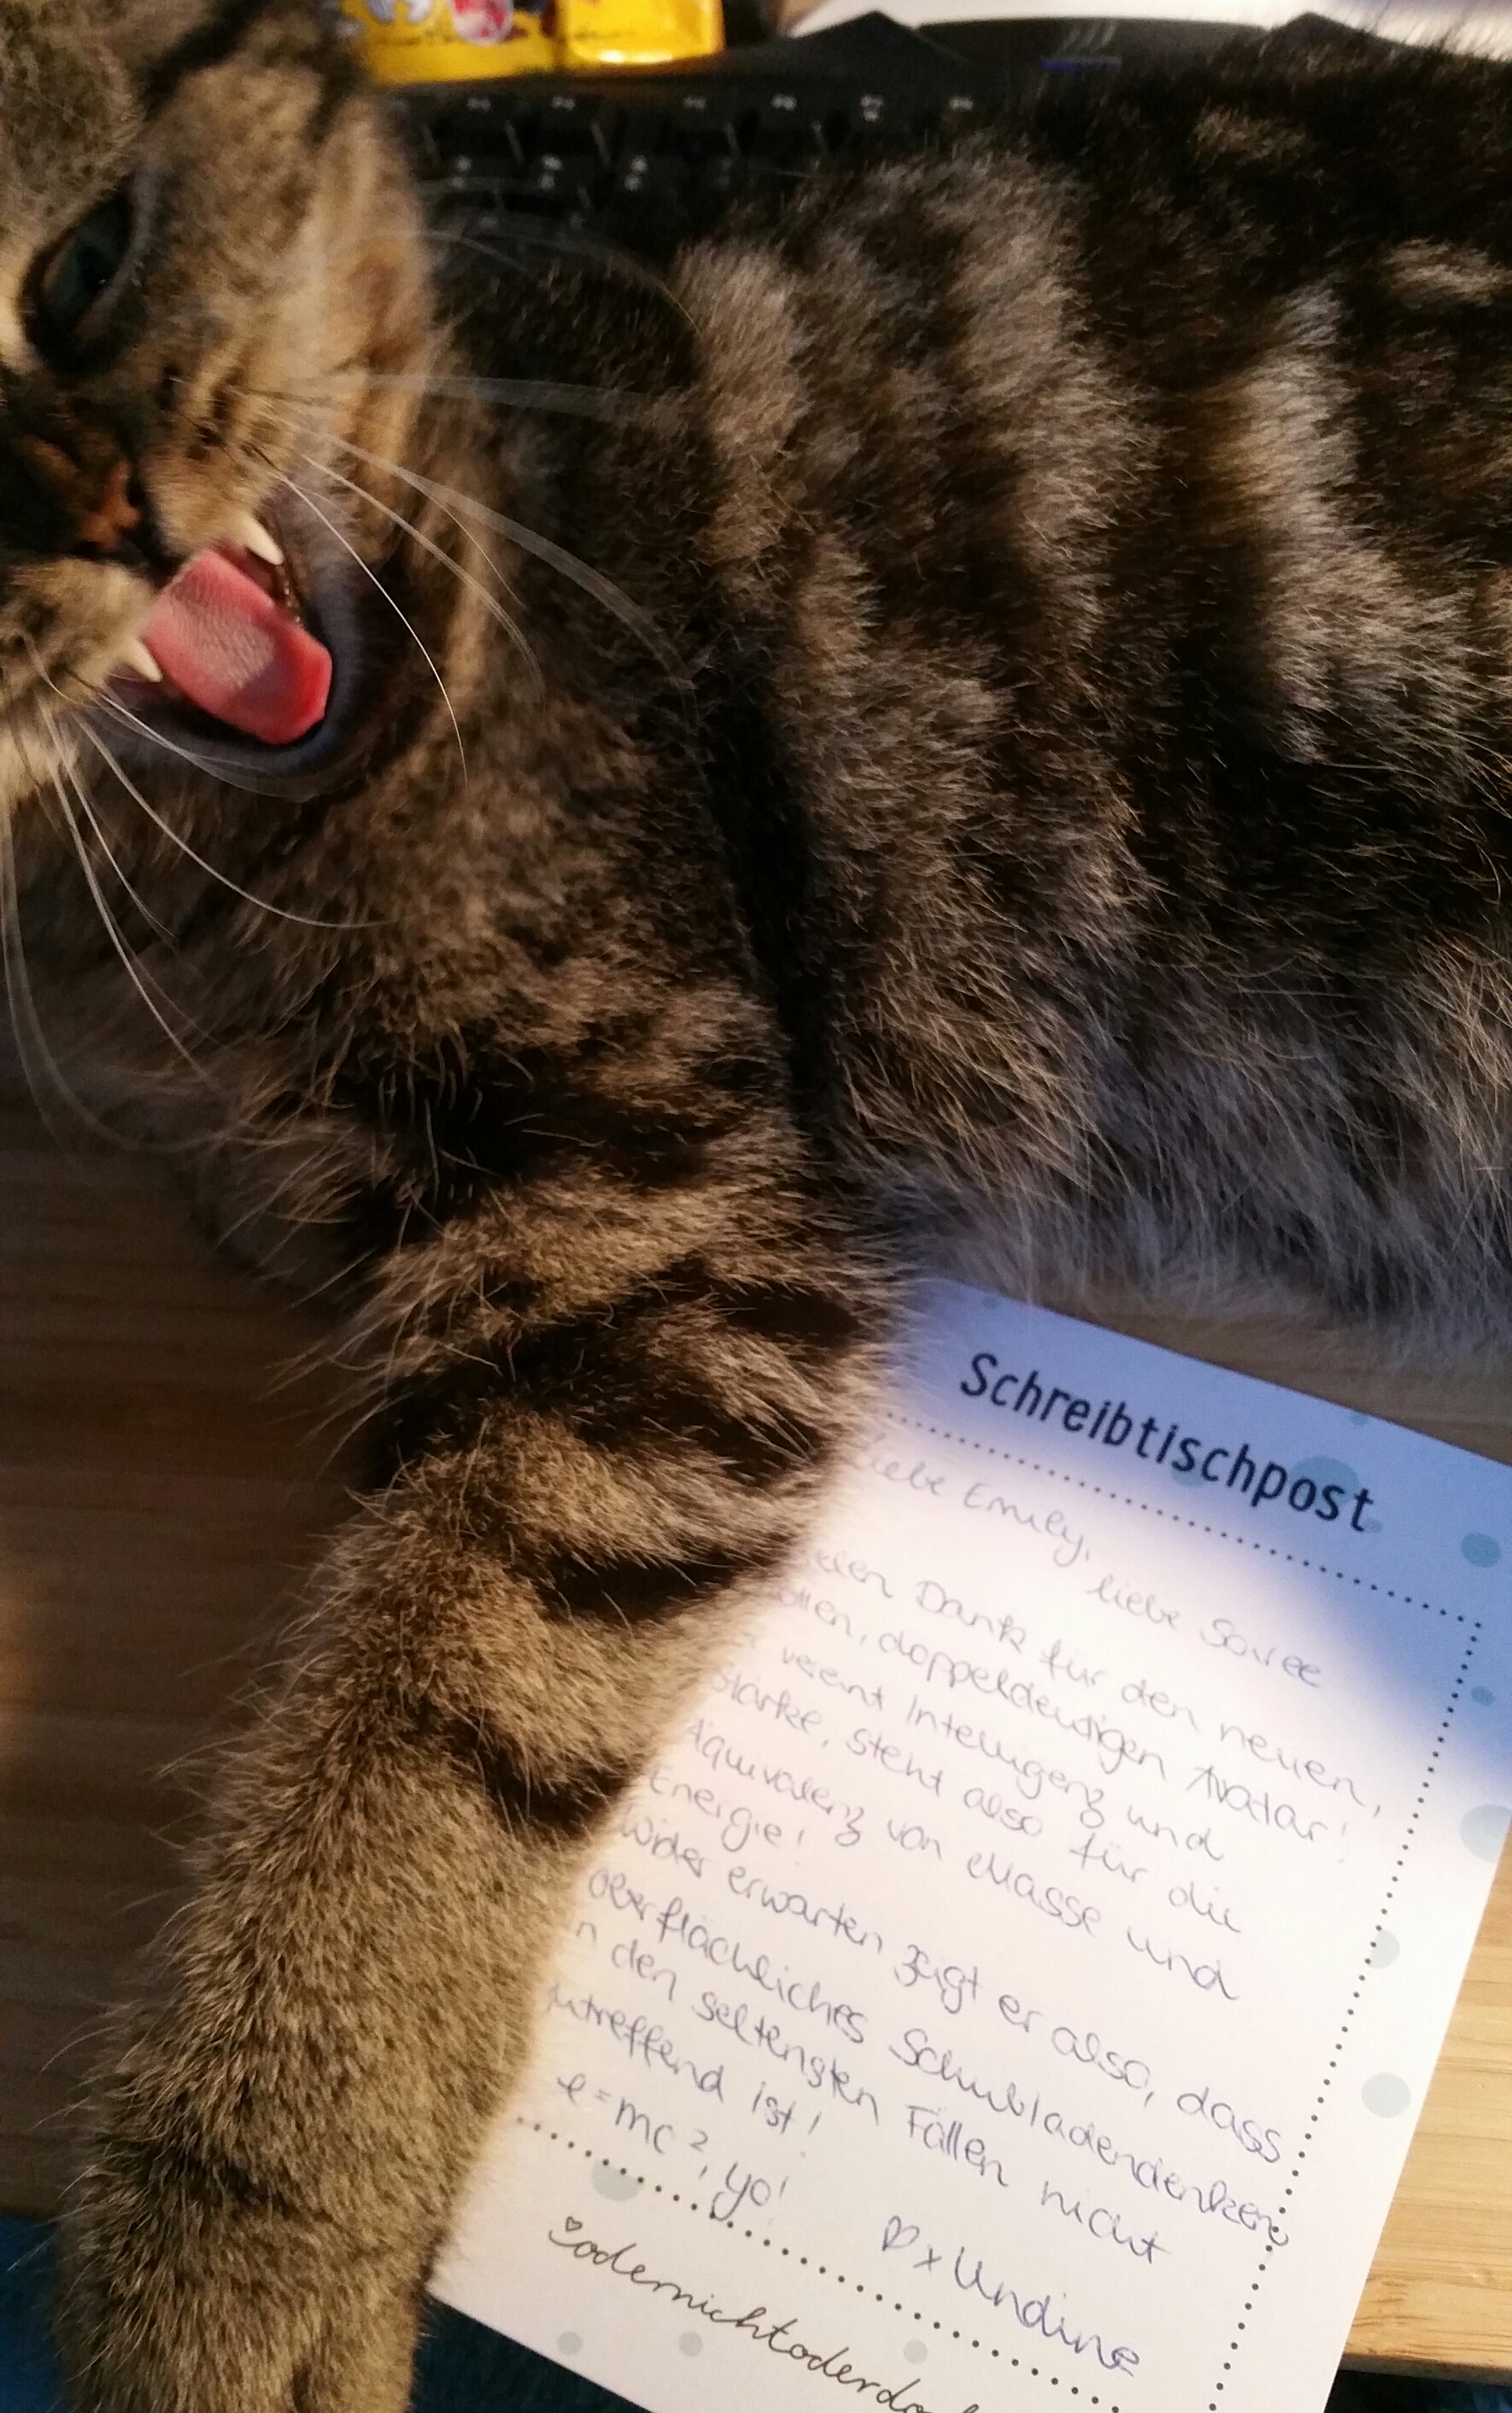 Schreibtischpost
liebe Emily, liebe Soiree
Dank für den neuen,
doppeldeutigen Avatar!
vereint Intelligenz und
Stärke, steht also für die
Äquivalenz von Masse und
Energie!
Wider erwarten zeigt er also, dass
oberflächliches Schubladendenken
n den seltensten Fällen nicht
zutreffend ist!
e=mc², yo!
♡ x Undine
odernichtoderdo